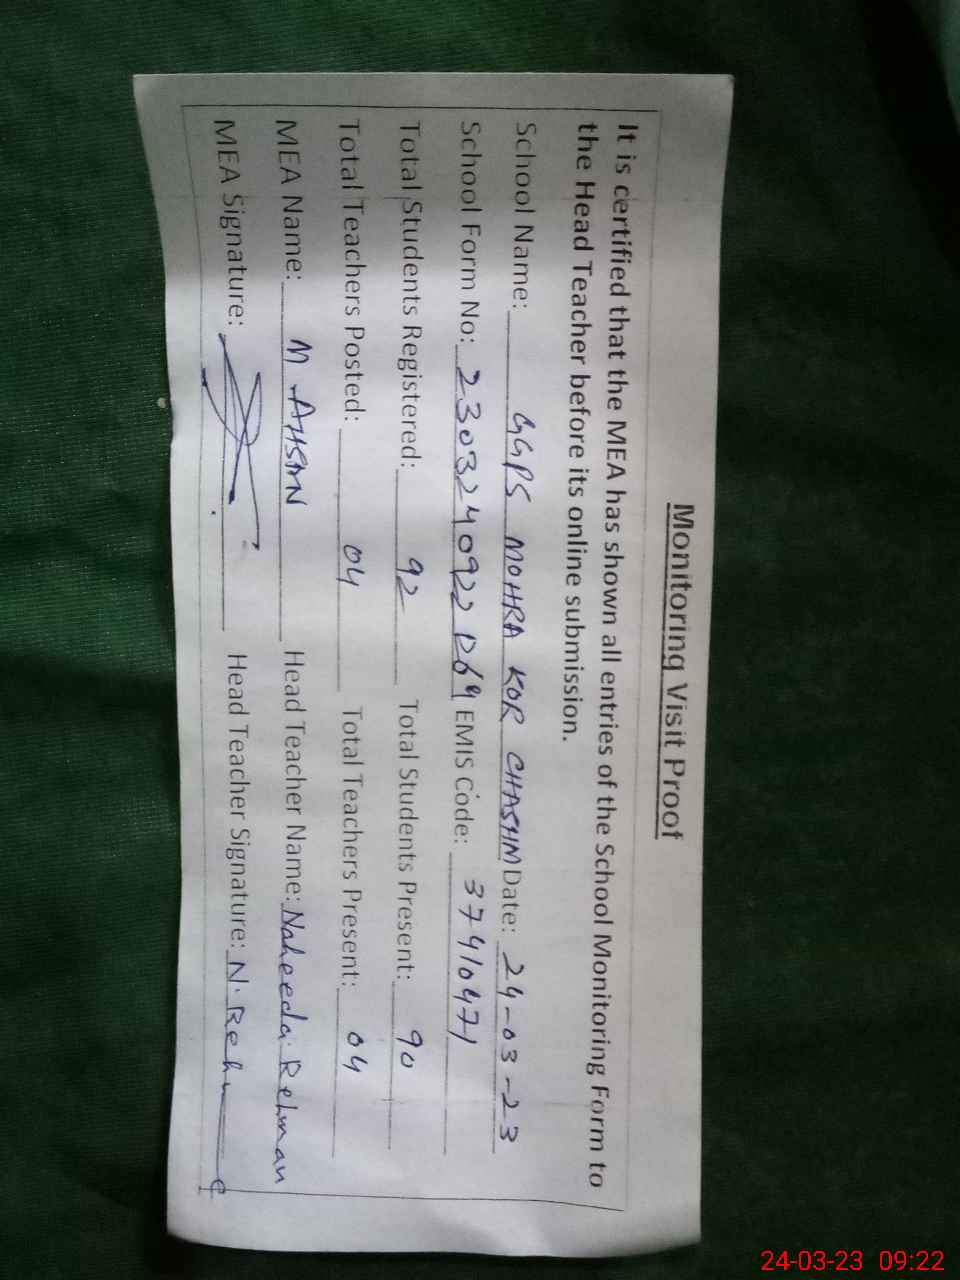 Monitoring Visit Proof
It is certified that the MEA has shown all entries of the School Monitoring Form to
the Head Teacher before its online submission.
School Name: GGPS MOHRA KOR CHASHM Date: 24-03-23
School Form No: 23032409221269 EMIS Code: 37410471
Total Students Registered: 92 Total Students Present: 90
Total Teachers Posted: 04 Total Teachers Present: 04
MEA Name: M. AHSAN Head Teacher Name: Naheeda Rehman
MEA Signature: Head Teacher Signature: N. Reh
24-03-23 09:22